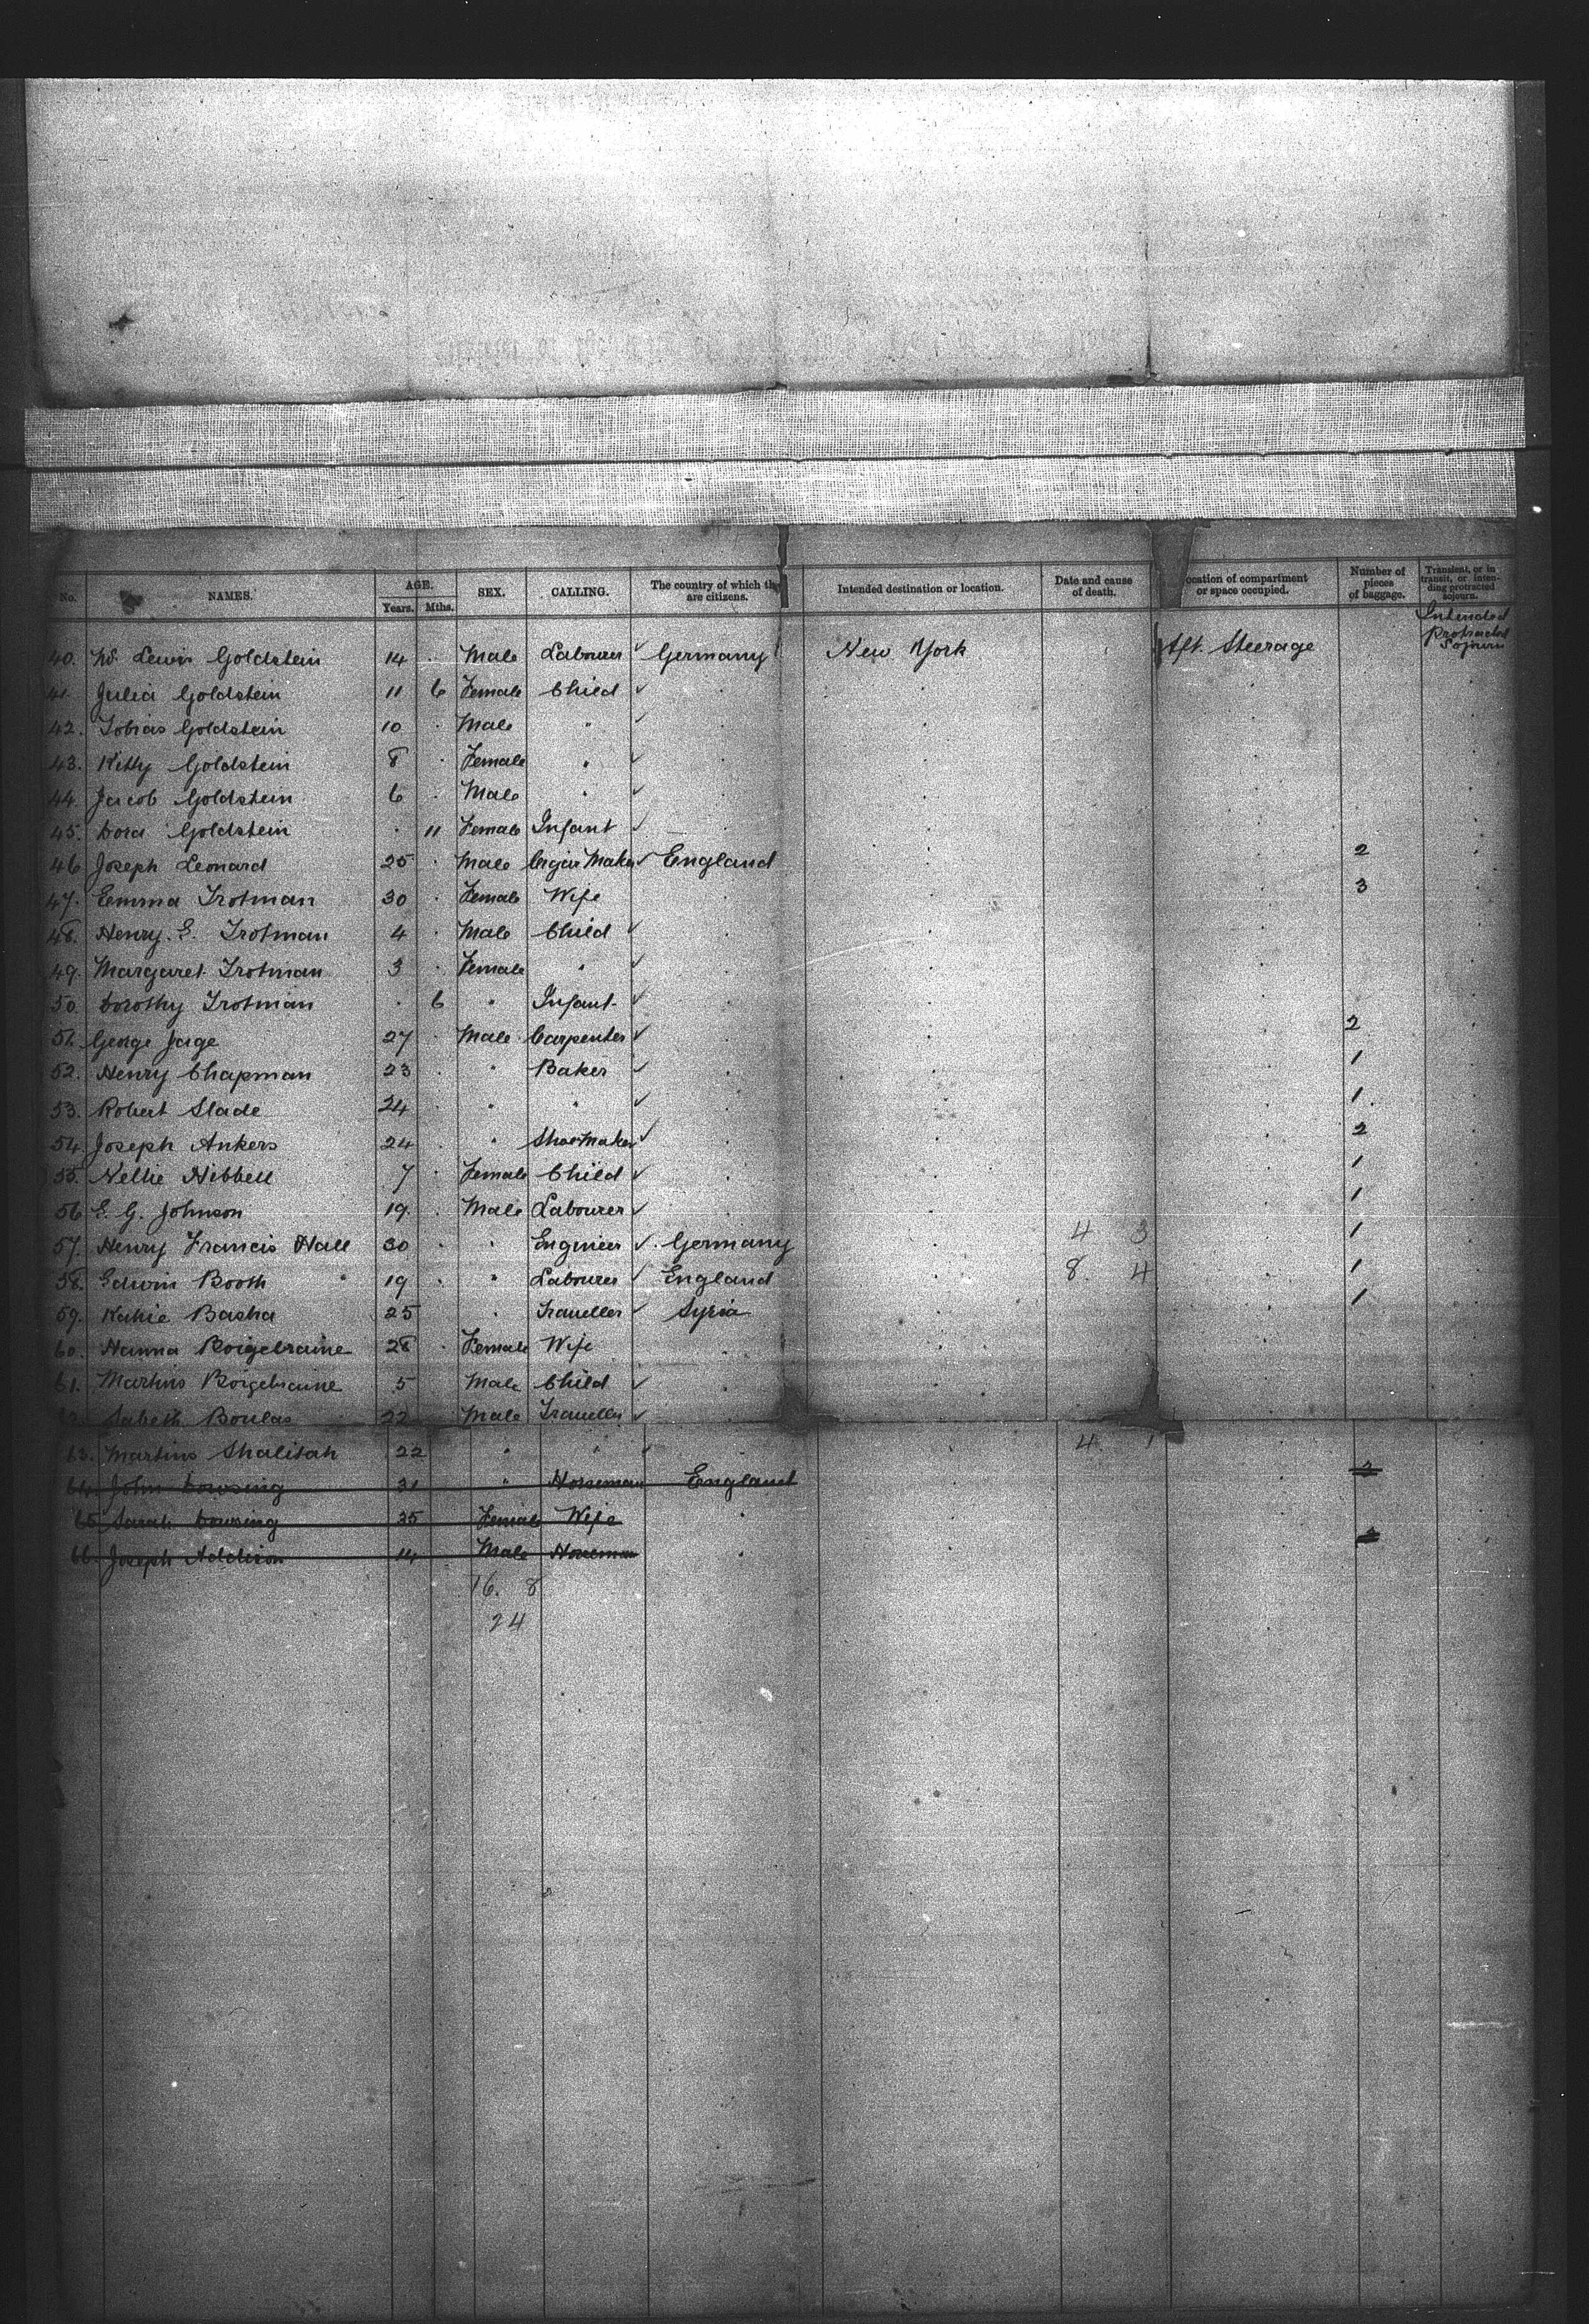 No. NAMES. AGE. Years. Mths. SEX. CALLING. The country of which th are citizens. Intended destination or location. Date and cause of death. ocation of compartment or space occupied. Number of pieces of baggage. Transient, or in transit, or intending protracted sojourn.
40. W. Lewis Goldstein 14 . Male Labourer ✓ Germany New York . Aft. Steerage Intended Protracted Sojourn
41. Julia Goldstein 11 6 Female Child ✓
42. Tobias Goldstein 10 . Male " ✓
43. Kitty Goldstein 8 . Female " ✓
44. Jacob Goldstein 6 . Male " ✓
45. Dora Goldstein . 11 Female Infant ✓
46 Joseph Leonard 25 . Male Cigar Maker ✓ England 2
47. Emma Trotman 30 . Female Wife 3
48. Henry. E. Trotman 4 . Male Child ✓
49. Margaret Trotman 3 . Female " ✓
50. Dorothy Trotman . 6 " Infant ✓
51. George Jarge 27 . Male Carpenter ✓ 2
52. Henry Chapman 23 . " Baker ✓ 1
53. Robert Slade 24 . " " ✓ 1
54. Joseph Ankers 24 . " Shoemaker ✓ 2
55. Nellie Hibbell 7 . Female Child ✓ 1
56 E. G. Johnson 19 . Male Labourer ✓ 1
57. Henry Francis Hall 30 . " Engineer ✓ Germany 4 3 1
58. Edwin Booth 19 . " Labourer ✓ England 8. 4 1
59. Kahie Basha 25 " Traveller ✓ Syria 1
60. Hanna Boigebraine 28 . Female Wife
61. Martins Boigebraine 5 Male Child ✓
Sabeth Boulas 22 Male Traveller ✓
63. Martins Shalitah 22 " " ✓ 4 1
64. John Dowsing 31 " Horseman England 2
65 Sarah Dowsing 35 Female Wife
66. Joseph Addison 14 Male Horseman
16. 8
24